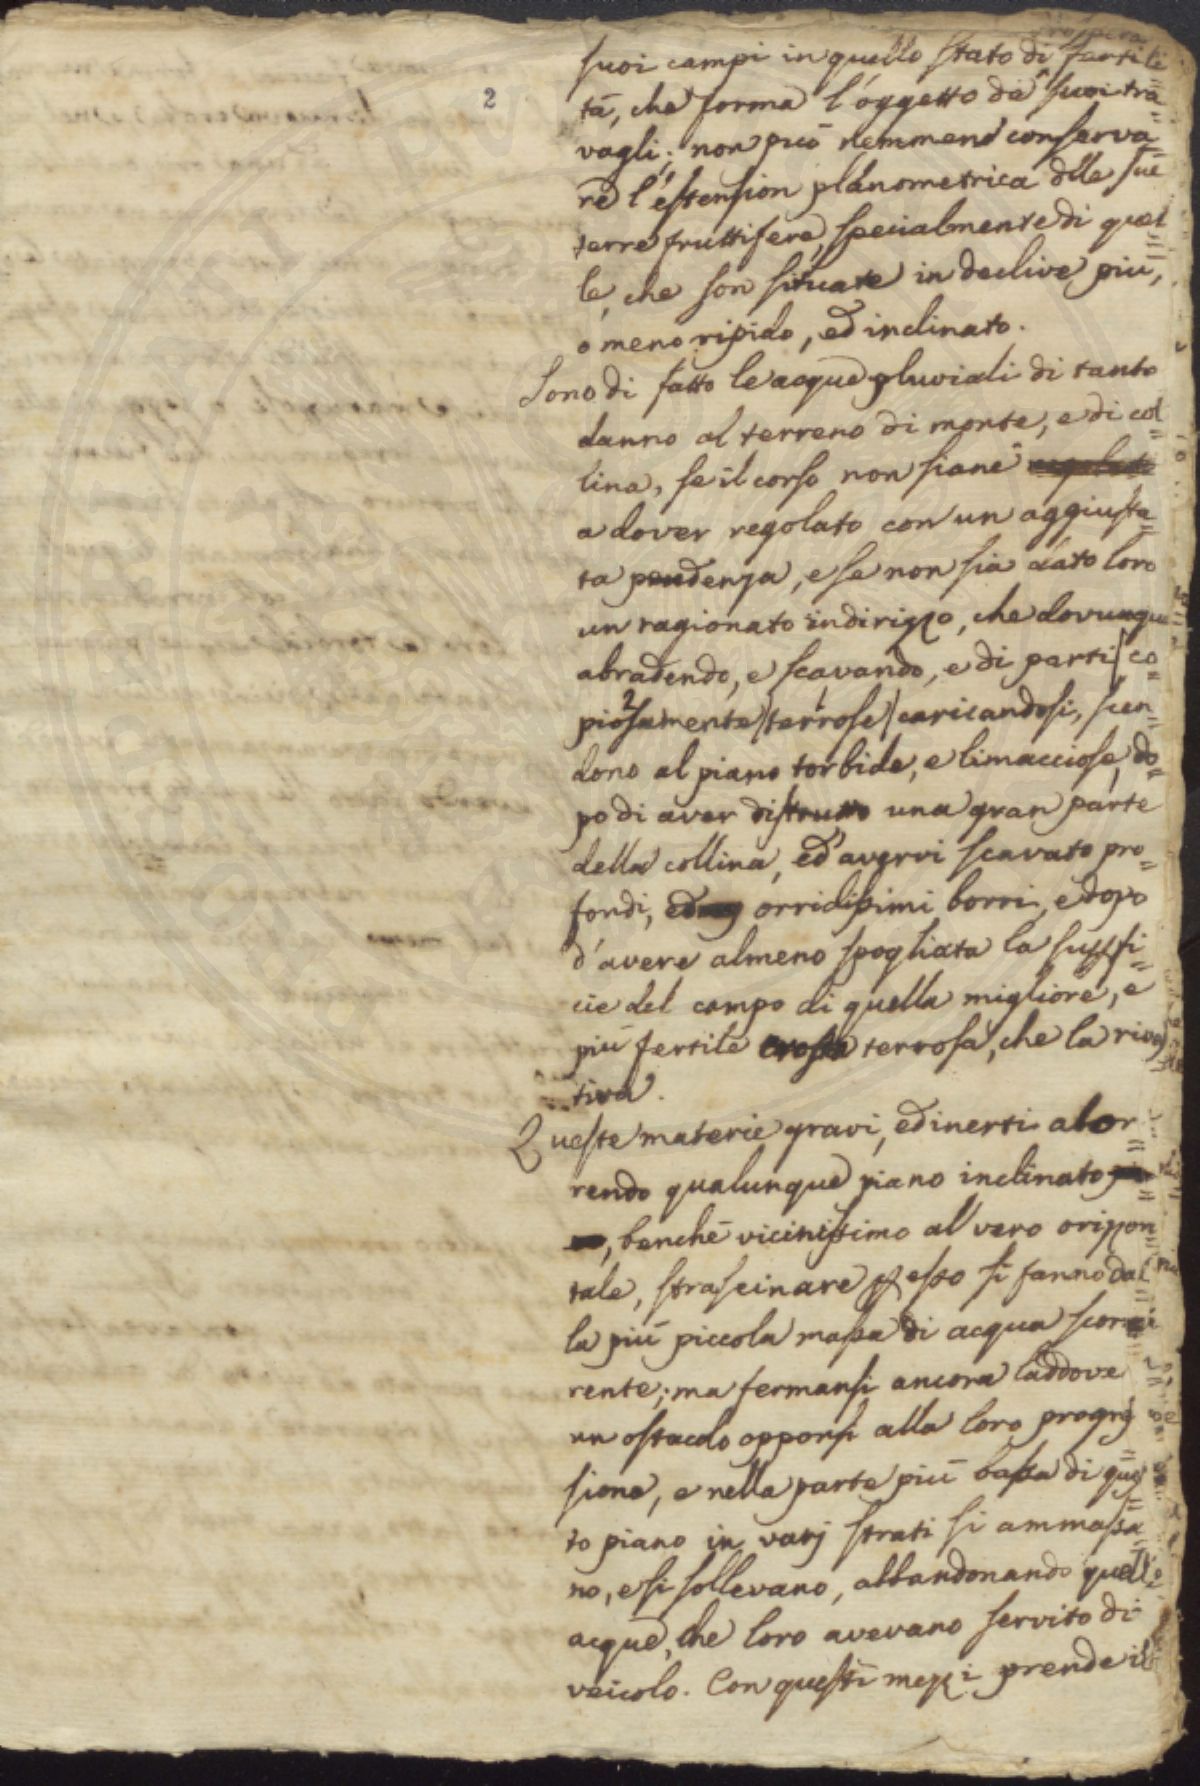 2
suoi campi in quello stato di fertili
tà, che forma l'oggetto de' suoi tra=
vagli; non può nemmeno conserva=
re l'estension planometrica dlle sue
terre fruttifere, specialmente di quel=
le, che son situate in declive più,
o meno ripido, ed inclinato.
Sono di fatto le acque pluviali di tanto
danno al terreno di monte, e di col=
lina, se il corso non siane regolato
a dover regolato con un aggiusta=
ta pendenza, e se non sia dato loro
un ragionato indirizzo, che dovunque
abradendo, e scavando, e di parti co=
piosamente terrose caricandosi, scen=
dono al piano torbide, e limacciose, do=
po di aver distrutto una gran parte
della collina, ed' avervi scavato pro=
fondi, ed orridissimi borri, e dopo
d'avere almeno spogliata la supfi=
cie del campo di quella migliore, e
più fertile crosta terrosa, che la rives=
tiva.
Queste materie gravi, ed inerti abor=
rendo qualunque piano inclinato
, benchè vicinissimo al vero orizzon=
tale, strascinare p esso si fanno dal=
la più piccola massa di acqua scor=
rente; ma fermansi ancora laddove
un ostacolo opponsi alla loro progres=
sione, e nella parte più bassa di ques=
to piano in varj strati si ammassa=
no, e si sollevano, abbandonando quelle
acque, che loro avevano servito di
veicolo. Con questi mezzi prende il